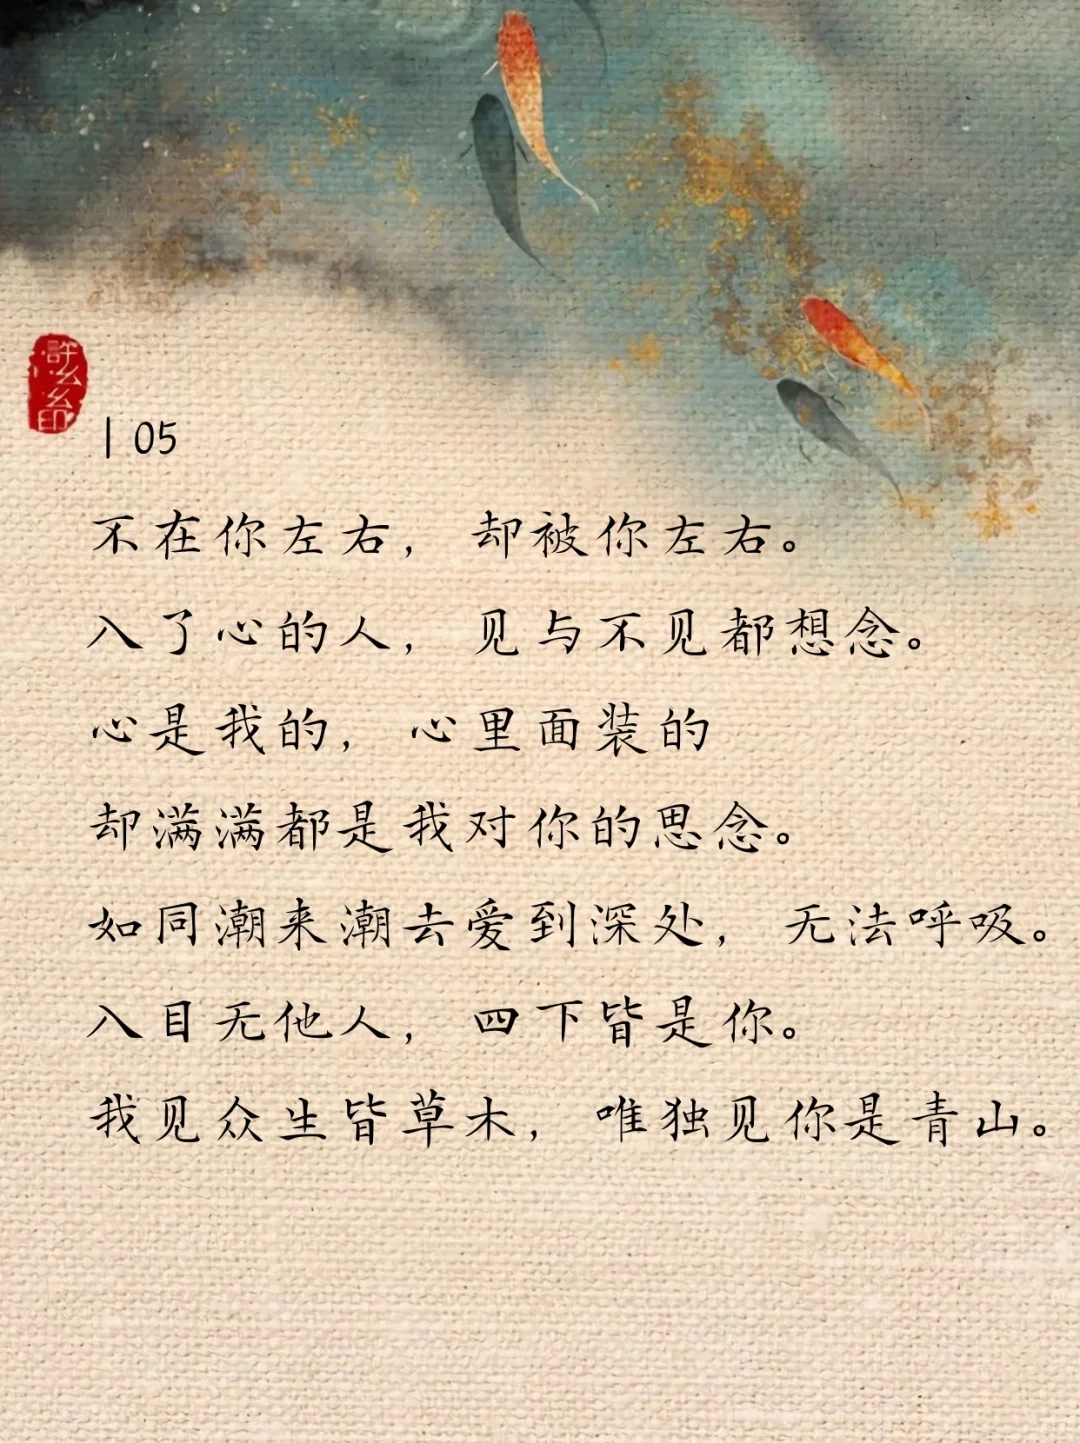 許么么印
| 05
不在你左右，却被你左右。
入了心的人，见与不见都想念。
心是我的，心里面装的
却满满都是我对你的思念。
如同潮来潮去爱到深处，无法呼吸。
入目无他人，四下皆是你。
我见众生皆草木，唯独见你是青山。